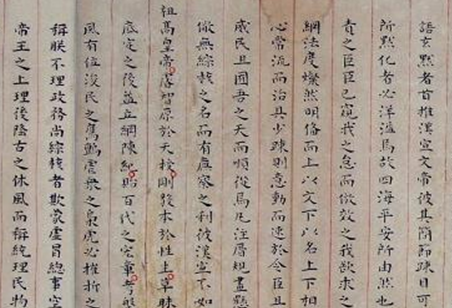 語玄黙者首推漢宣文帝彼其簡節踈目可
所黙化者必洋溢焉故四海平安所由然也
責之臣臣已窺我之怠而倣效之我欲求之
綱法度燦然明偹而上以文下以名上下相
心常流而治具少踈則意動而速於令臣且
民且囿吾之天而順從焉凡注厝規畫懸
儆無綜核之名而有廉察之利彼漢宣不如
祖高皇帝睿智原於天授剛毅本於性生草昧
底定之後益立綱陳紀貽百代之宏章考
風有位沒民之鷹鸇虐衆之梟虎必摧折之
稱朕不理政務尚綜核者欺蒙虛冒總事空
帝王之上理後隆古之休風而稱統理民物